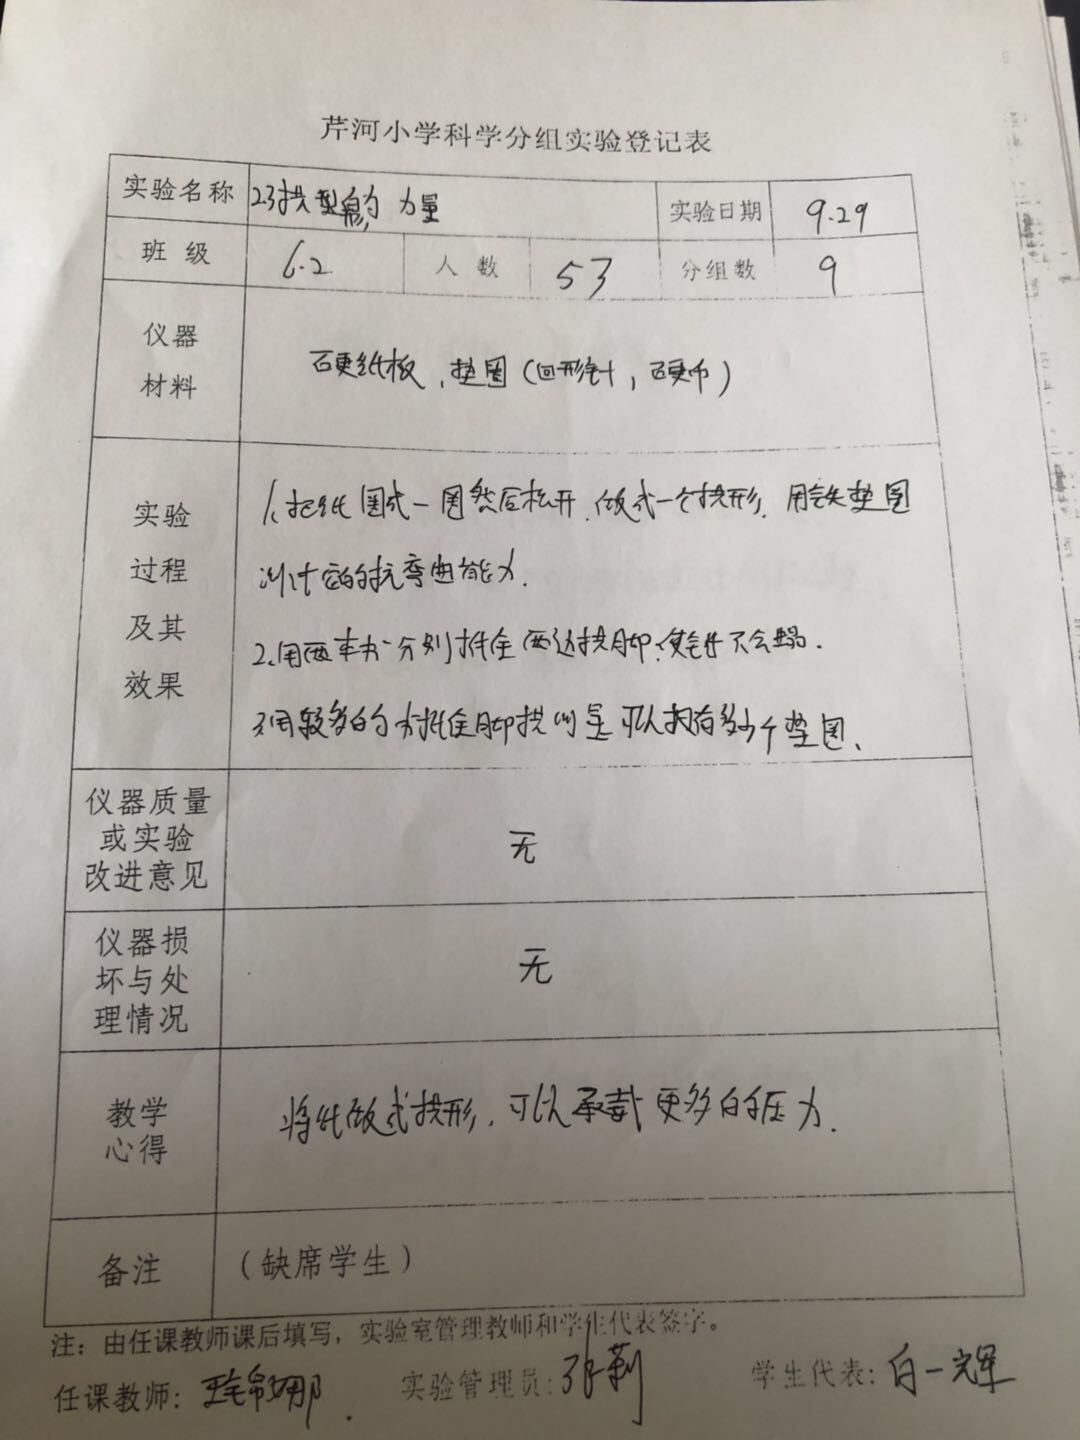 芹河小学科学分组实验登记表
实验名称 2.3拱型的力量 实验日期 9.29
班级 6.2 人数 53 分组数 9
仪器
材料
硬纸板、垫圈(回形针,硬币)
实验
过程
及其
效果
1、把纸围成一圈然后松开、做成一个拱形、用铁垫圈
测计它的抗弯曲能力.
2、用两本书分别抵住两边拱脚、使它不会塌.
3、用较多的书抵住脚拱测量可以拥有多少个垫圈、
仪器质量
或实验
改进意见
无
仪器损
坏与处
理情况
无
教学
心得
将纸做成拱形,可以承载更多的压力.
备注 (缺席学生)
注:由任课教师课后填写,实验室管理教师和学生代表签字。
任课教师: 实验管理员:张莉 学生代表:白一辉